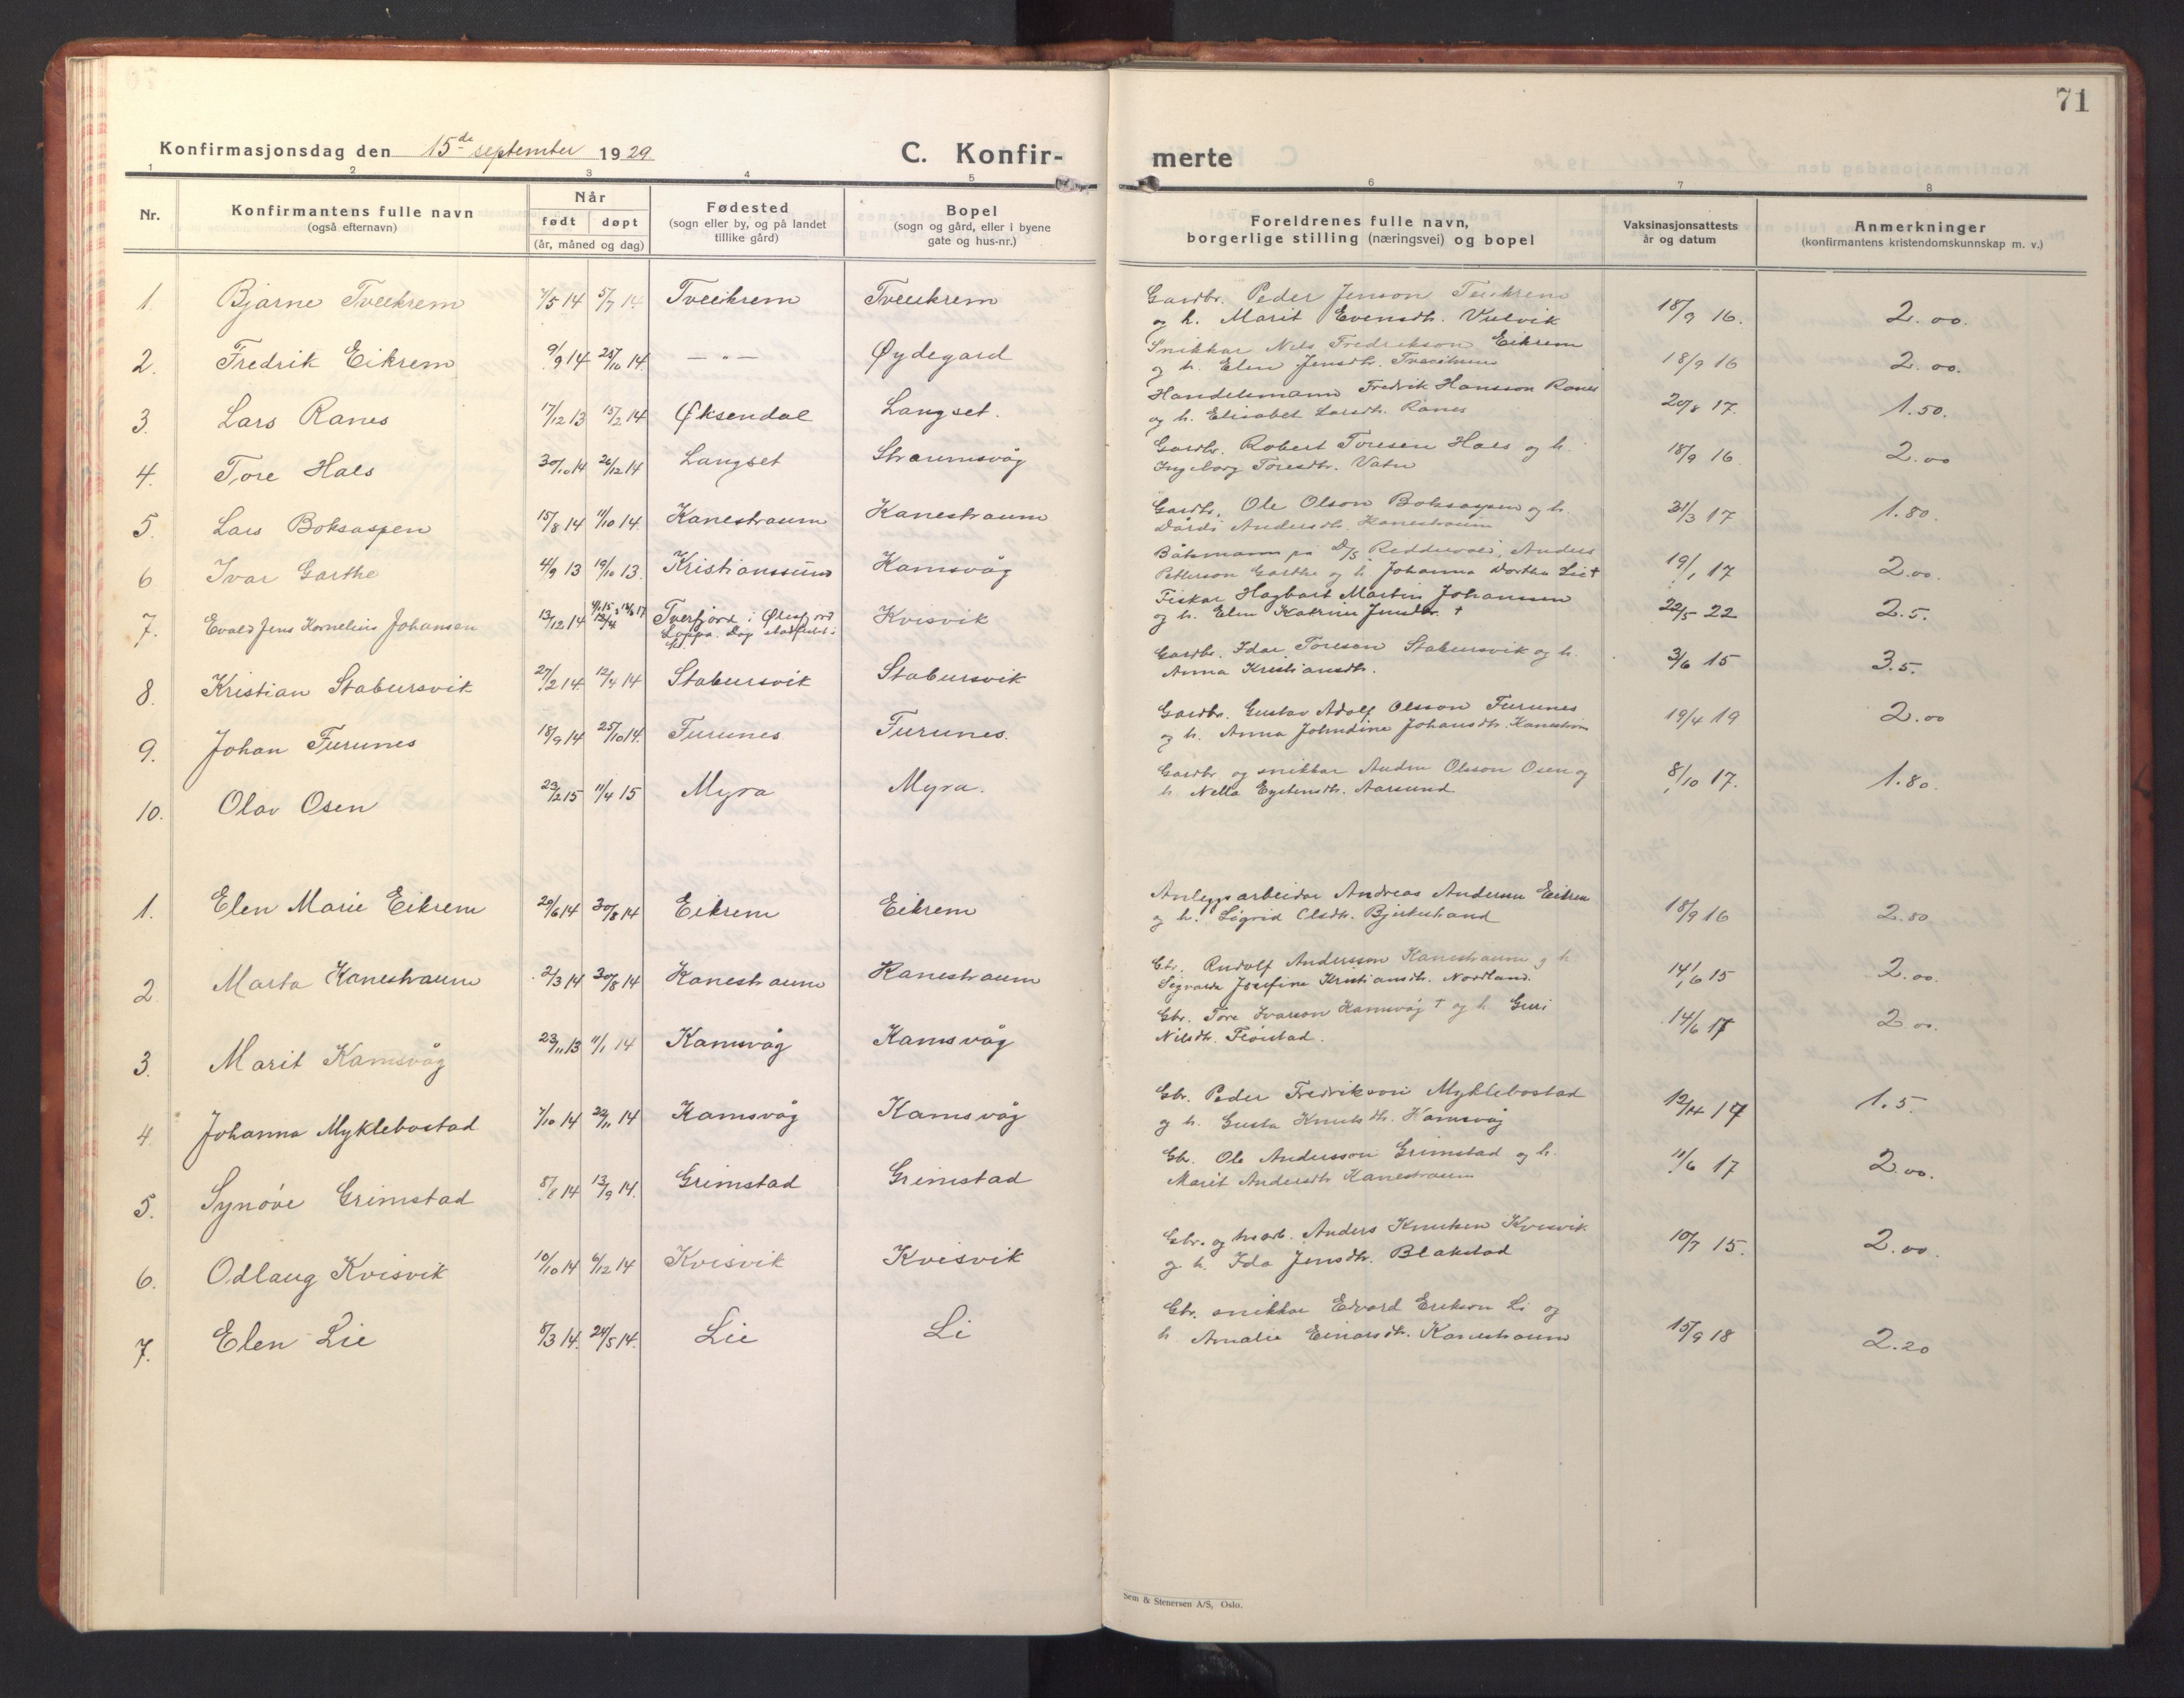 71
Konfirmasjonsdag den 15de september 1929
C. Konfir-
merte
1 2 3 4 5 6 7 8
Nr.
Konfirmantens fulle navn
(også efternavn)
Når
født døpt
(år, måned og dag)
Fødested
(sogn eller by, og på landet
tillike gård)
Bopel
(sogn og gård, eller i byene
gate og hus-nr.)
Foreldrenes fulle navn,
borgerlige stilling (næringsvei) og bopel
Vaksinasjonsattests
år og datum
Anmerkninger
(konfirmantens kristendomskunnskap m. v.)
1. Bjarne Tveekrem 7/5 14 5/7 14. Tveekrem Tveekrem
Gardbr. Peder Jenson
og h. Marit Evensdtr. Vulvik
18/9 16. 2.00.
2. Fredrik Eikrem 9/9 14 25/10 14. — " — Øydegard
Snikkar Nils Fredrikson Eikrem
og h. Elen Jensdtr.
18/9 16 2.00.
3. Lars Ranes 17/12 13 15/2 14 Øksendal Langset.
Handelsmann Fredrik Hansson Ranes
og h. Elisabet Larsdtr. Ranes
20/8 17. 1.50.
4. Tore Hals 30/10 14 26/12 14 Langset Straumsvåg
Gardbr. Robert Toresen Hals og h.
Ingeborg Toresdtr. Vatn
18/9 16 2.00
5. Lars Boksaspen 15/8 14 11/10 14. Kanestraum Kanestraum
Gardbr. Ole Olson Boksaspen og h.
Dårdi Andersdtr. Kanestraum
31/3 17 1.80.
6. Ivar Garthe 4/9 13 19/10 13. Kristianssund Kamsvåg
Båtsmann på D/S Anders
Petterson Garthe og h. Johanna Dorthea Lie †
19/1 17 2.00.
7. Evald Jens Kornelius Johansen 13/12 14 Tverfjord i Øksfjord Kvisvik
Loppa. Dåp stadfest i
Fiskar Hagbart Martin Johansen
og h. Elen Katrine Jensdtr. †
22/5 22 2.5.
8. Kristian Stabursvik 27/2 14 12/4 14 Stabursvik Stabursvik
Gardbr. Idar Toreson Stabursvik og h.
Anna Kristiansdtr.
3/6 15 3.5.
9. Johan Furunes 18/9 14 25/10 14. Furunes Furunes.
Gardbr. Gustav Adolf Olsson Furunes
og h. Anna Johndine Johansdtr.
19/4 19 2.00
10. Olav Osen 23/2 15 11/4 15 Myra Myra.
Gardbr. og snikkar Olsson Osen og
h. Nella Eystensdtr. Aarsund
8/10 17. 1.80.
1. Elen Marie Eikrem 29/6 14 30/8 14 Eikrem Eikrem
Anleggsarbeidar Andreas Andersen Eikrem
og h. Sigrid Olsdtr. Bjerkestrand
18/9 16 2.80
2. Marta Kanestraum 2/3 14 30/8 14 Kanestraum Kanestraum
Gbr. Rudolf Andersson Kanestraum og h
Josefine Kristiansdtr. Nordland.
14/6 15 2.00.
3. Marit Kamsvåg 23/11 13 11/1 14 Kamsvåg Kamsvåg
Gbr. Tore Ivarson Kamsvåg † og h. Guri
Nilsdtr. Fløistad.
14/6 15 2.00.
4. Johanna Myklebostad 7/10 14 22/11 14 Kamsvåg Kamsvåg
Gbr. Peder Fredrikson Myklebostad
og h. Gusta Knutsdtr. Kamsvåg
12/4 17 1.5.
5. Synöve Grimstad 8/8 14 13/9 14. Grimstad Grimstad
Gbr. Ole Andersson Grimstad og h.
Marit Andersdtr. Kanestraum
11/6 17 2.00.
6. Odlaug Kvisvik 10/10 14 6/12 14 Kvisvik Kvisvik
Gbr. og Anders Knutsen Kvisvik
og h. Ida Jensdtr. Blakstad
10/7 15. 2.00.
7. Elen Lie 8/3 14. 24/5 14. Lie Li
Gbr. snikkar Edvard Erikson Li og
h. Amalie Einarsdtr. Kanestraum
15/9 18 2.20
Sem & Stenersen A/S, Oslo.